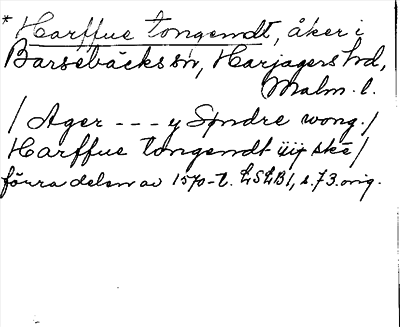 * Harffue tongemdt, åker i
Barsebäcks sn, Harjagers hd,
Malm. l.
/ Ager - - - y Søndre wong. /
Harffue tongemdt iiij ske /
förra delen av 1570-t. LSLB1, s. 73. orig.